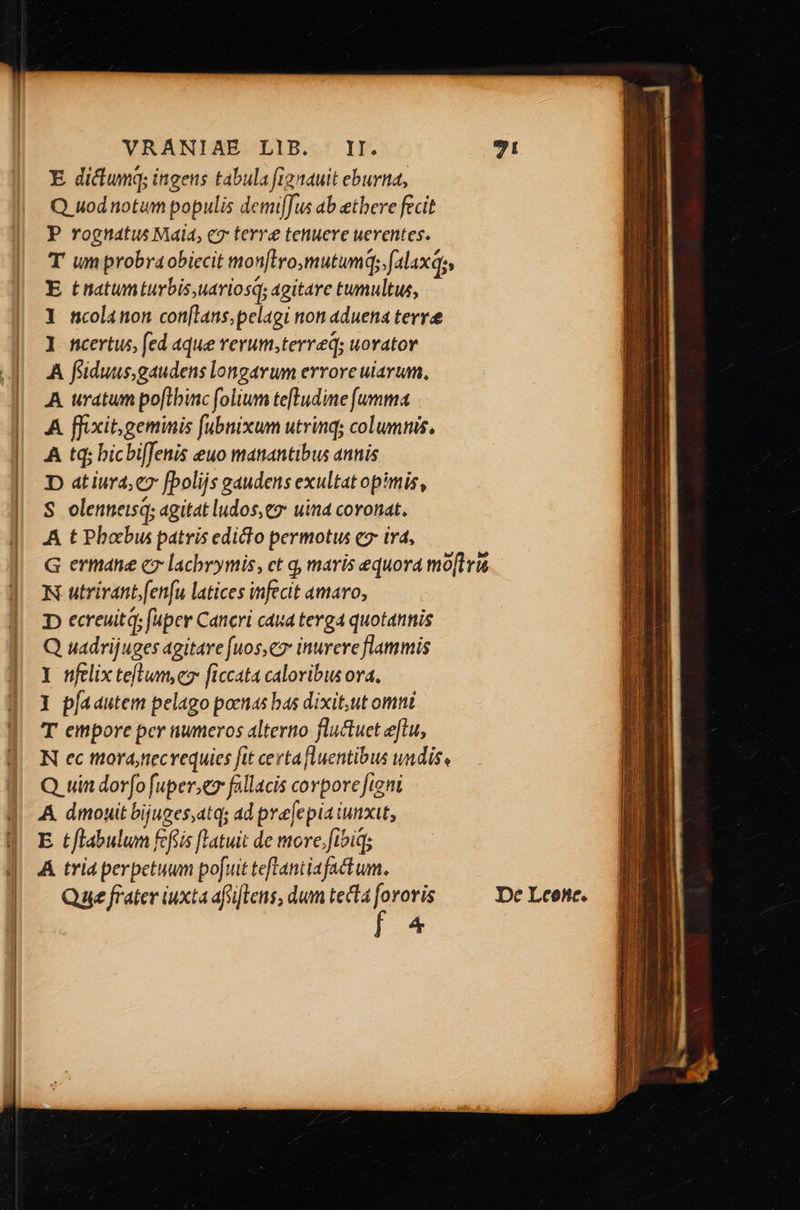 VRANIAE LIB. II. 71
E dictumq; ingens tabula ſignauit eburna,
Q uod notum populis demiſſus ab æthere fecit
P rognatus Maia, & terræ tenuere uerentes.
T um probra obiecit monſtro, mutumq;, ſalaxq;,
E t natum turbis, uarioſq; agitare tumultus,
I ncola non conſtans, pelagi non aduena terræ
I ncertus, ſed aquæ rerum, terræq; uorator
A ſsiduus, gaudens longarum errore uiarum,
A uratum poſthinc ſolium teſtudine ſumma
A ffixit, geminis ſubnixum utrinq; columnis,
A tq; hic biſſenis æuo manantibus annis
D at iura, & ſpolijs gaudens exultat opimis,
S olenneisq; agitat ludos, & uina coronat.
A t Phœbus patris edicto permotus & ira,
G ermanæ & lachrymis, et q, maris æquora mõſtrũ
N utrirant, ſenſu latices infecit amaro,
D ecreuitq; ſuper Cancri caua terga quotannis
Q uadrijuges agitare ſuos, & inurere flammis
I nfelix teſtum, & ſiccata caloribus ora,
I pſa autem pelago pœnas has dixit, ut omni
T empore per numeros alterno fluctuet æſtu,
N ec mora, nec requies ſit certa fluentibus undis,
Q uin dorſo ſuper, & fallacis corpore ſigni
A dmouit bijuges, atq; ad præſepia iunxit,
E t ſtabulum feſsis ſtatuit de more, ſibiq;
A tria perpetuum poſuit teſtantia factum.
Quæ frater iuxta aſsiſtens, dum tecta ſororis De Leone.
f 4